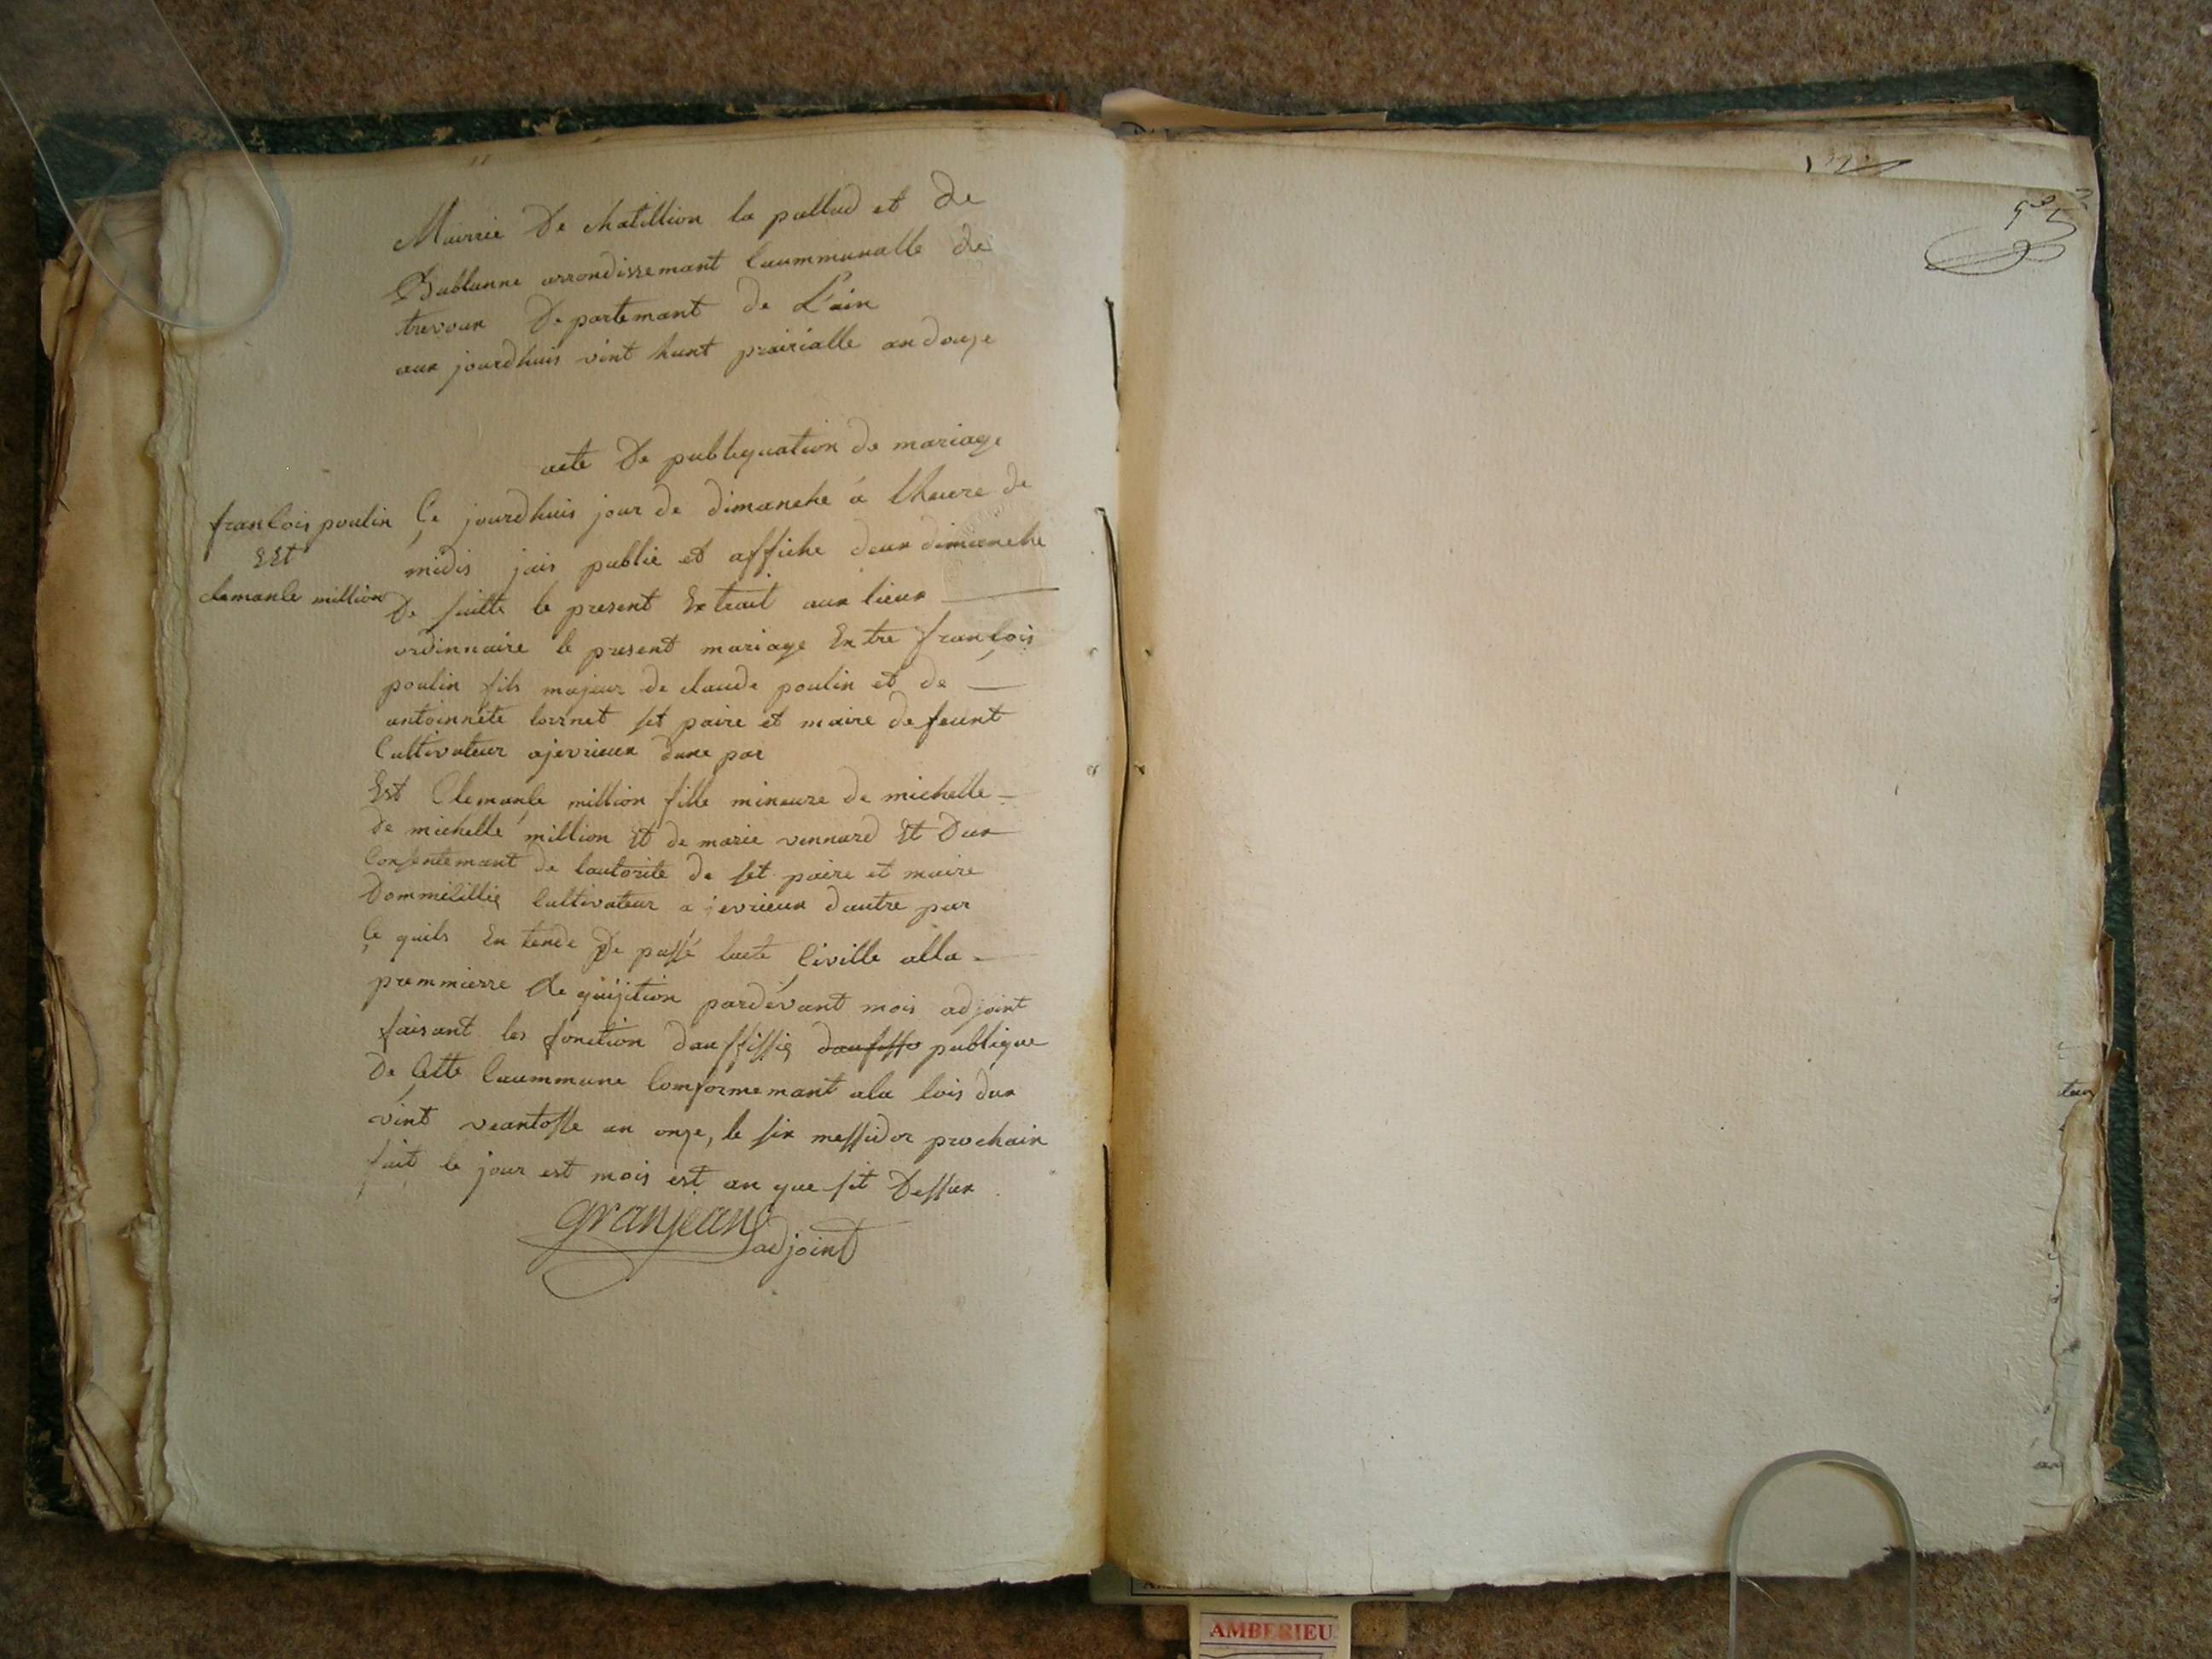 Mairrie De chatillion la pallud et de
Bublanne arrondissemant Caummunalle de
trevoux Departemant de L'ain
aux jourdhuis vint huut prairialle an douze
acte De publiquation de mariage
franCois poulin
Est
clemanCe million
Çe jourdhuis jour de dimanche à lheure de
midis jais publie et affiche deux dimanche
De suitte le present Extrait aux lieux
ordinnaire le present mariage Entre françois
poulin fils majeur de claude poulin et de
antoinnéte Cornet set paire et maire defeunt
Cultivateur a jevrieux dune par
Est ClemanCe million fille mineure de michelle
de michelle million Et de marie vennard Et Dux
Consentemant de lautorite de set paire et maire
Dommicillie Cultivateur a jevrieux dautre par
Çe quils En tende De passé lacte Civille alla
premmierre Requijition pardevant mois adjoint
faisant les fonction dauffissie daufisse publique
De Cette Caummune Comformemant ala lois dux
vint veantosse an onze, le six messidor prochain
fait le jour est mois est an que sit Dessux
granjean
adjoint
AMBERIEU